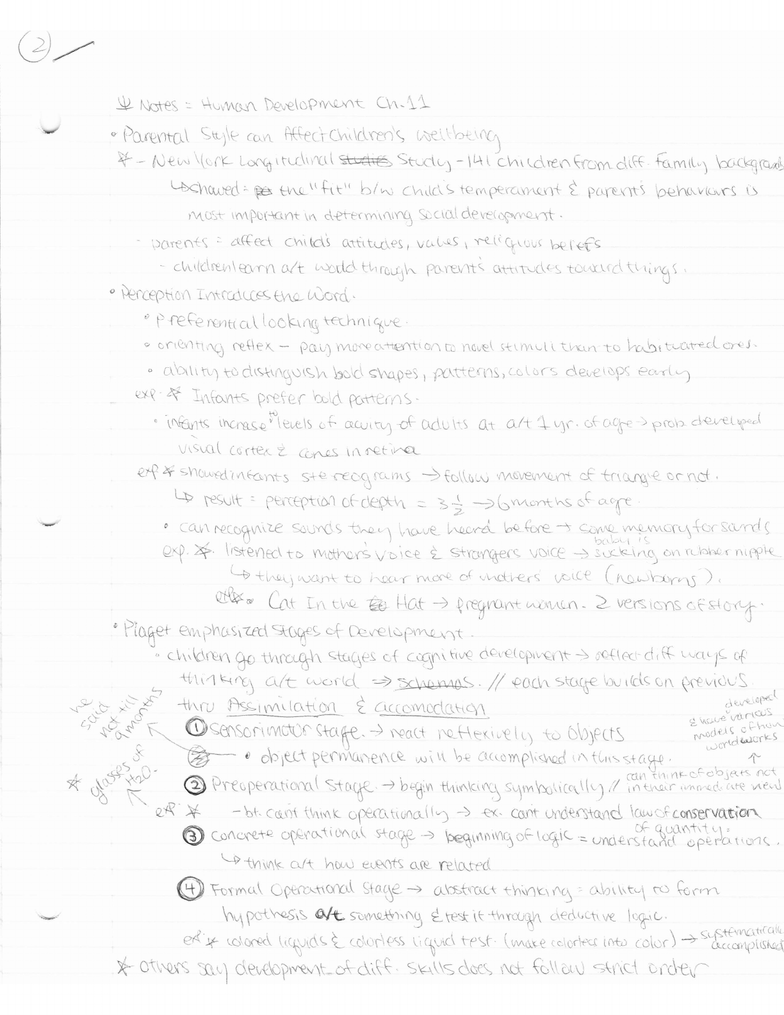 2
Ψ Notes = Human Development Ch. 11
• Parental Style can Affect Children's wellbeing
* - New York Longitudinal Studies Study - 141 children from diff. family backgrounds
↳ showed = the "fit" b/w child's temperament & parent's behaviours is
most important in determining social development.
- parents = affect child's attitudes, values, religious beliefs
- children learn a/t world through parent's attitudes toward things.
• Perception Introduces the Word.
• Preferential looking technique.
• orienting reflex - pay more attention to novel stimuli than to habituated ones.
• ability to distinguish bold shapes, patterns, colors develops early
exp. * Infants prefer bold patterns.
• infants increase to levels of acuity of adults at a/t 1 yr. of age → prob. developed
visual cortex & cones in retina
exp * showed infants stereograms → follow movement of triangle or not.
↳ result = perception of depth = 3 1/2 → 6 months of age.
• can recognize sounds they have heard before → some memory for sounds
exp. * listened to mother's voice & strangers voice → baby is sucking on rubber nipple
↳ they want to hear more of mothers' voice (newborns).
• Cat In the Hat → pregnant women. 2 versions of story.
• Piaget emphasized stages of Development.
• children go through stages of cognitive development → reflect diff ways of
thinking a/t world → schemas. // each stage builds on previous
thru Assimilation & accomodation
he said not till 9 months
develop & have various models of how world works
① Sensorimotor stage. → react reflexively to Objects
• object permanence will be accomplished in this stage.
* glasses of H2O.
② Preoperational Stage. → begin thinking symbolically // can think of objects not in their immediate view
exp * - bt. can't think operationally → ex. cant understand law of conservation
of quantity.
③ Concrete operational stage → beginning of logic = understand operations.
↳ think a/t how events are related
④ Formal Operational Stage → abstract thinking = ability to form
hypothesis a/t something & test it through deductive logic.
exp * colored liquids & colorless liquid test. (make colorless into color) → systematically accomplished
* others say development of diff. skills does not follow strict order